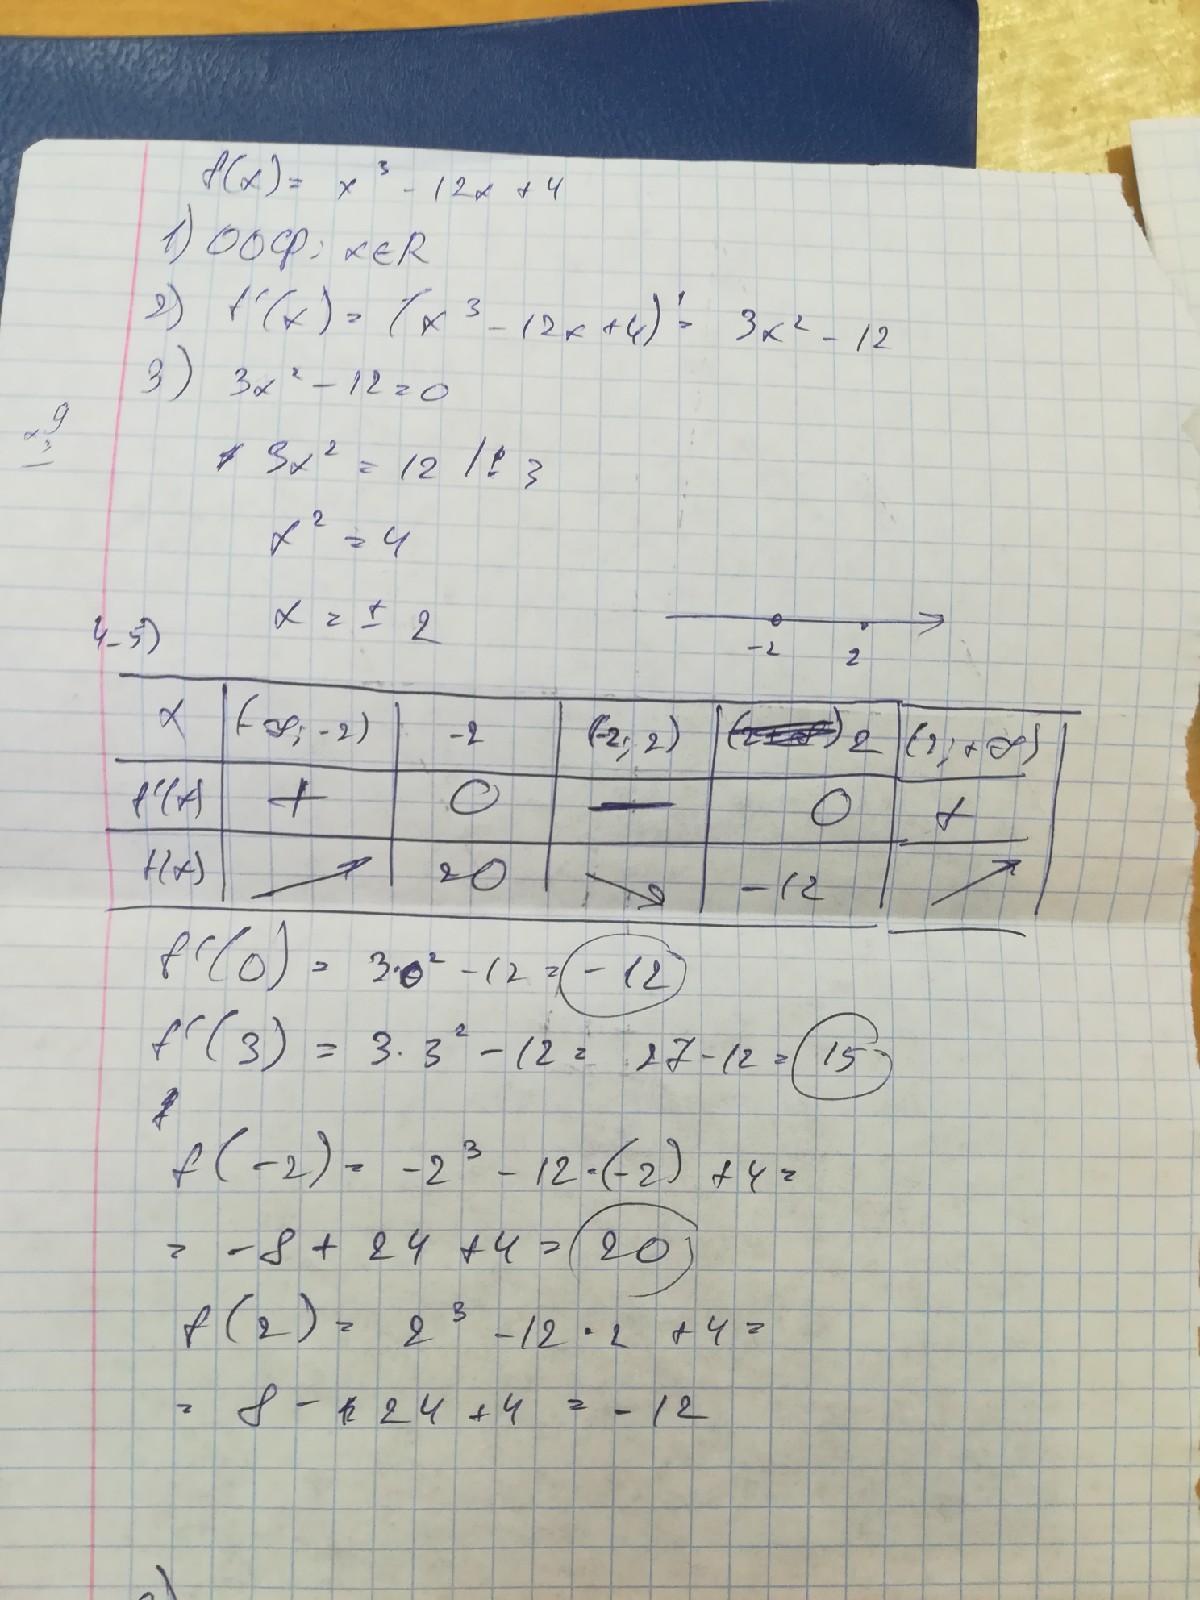 f(x) = x³ - 12x + 4
1) ООФ: x∈R
2) f'(x) = (x³ - 12x + 4)' = 3x² - 12
3) 3x² - 12 = 0
3x² = 12 | : 3
x² = 4
x = ± 2
-2 2
4-5)
x (-∞; -2) -2 (-2; 2) 2 (2; +∞)
f'(x) + 0 — 0 +
f(x) ↗ 20 ↘ -12 ↗
f'(0) = 3·0² - 12 = -12
f'(3) = 3·3² - 12 = 27 - 12 = 15
f(-2) = -2³ - 12·(-2) + 4 =
= -8 + 24 + 4 = 20
f(2) = 2³ - 12·2 + 4 =
= 8 - 24 + 4 = -12